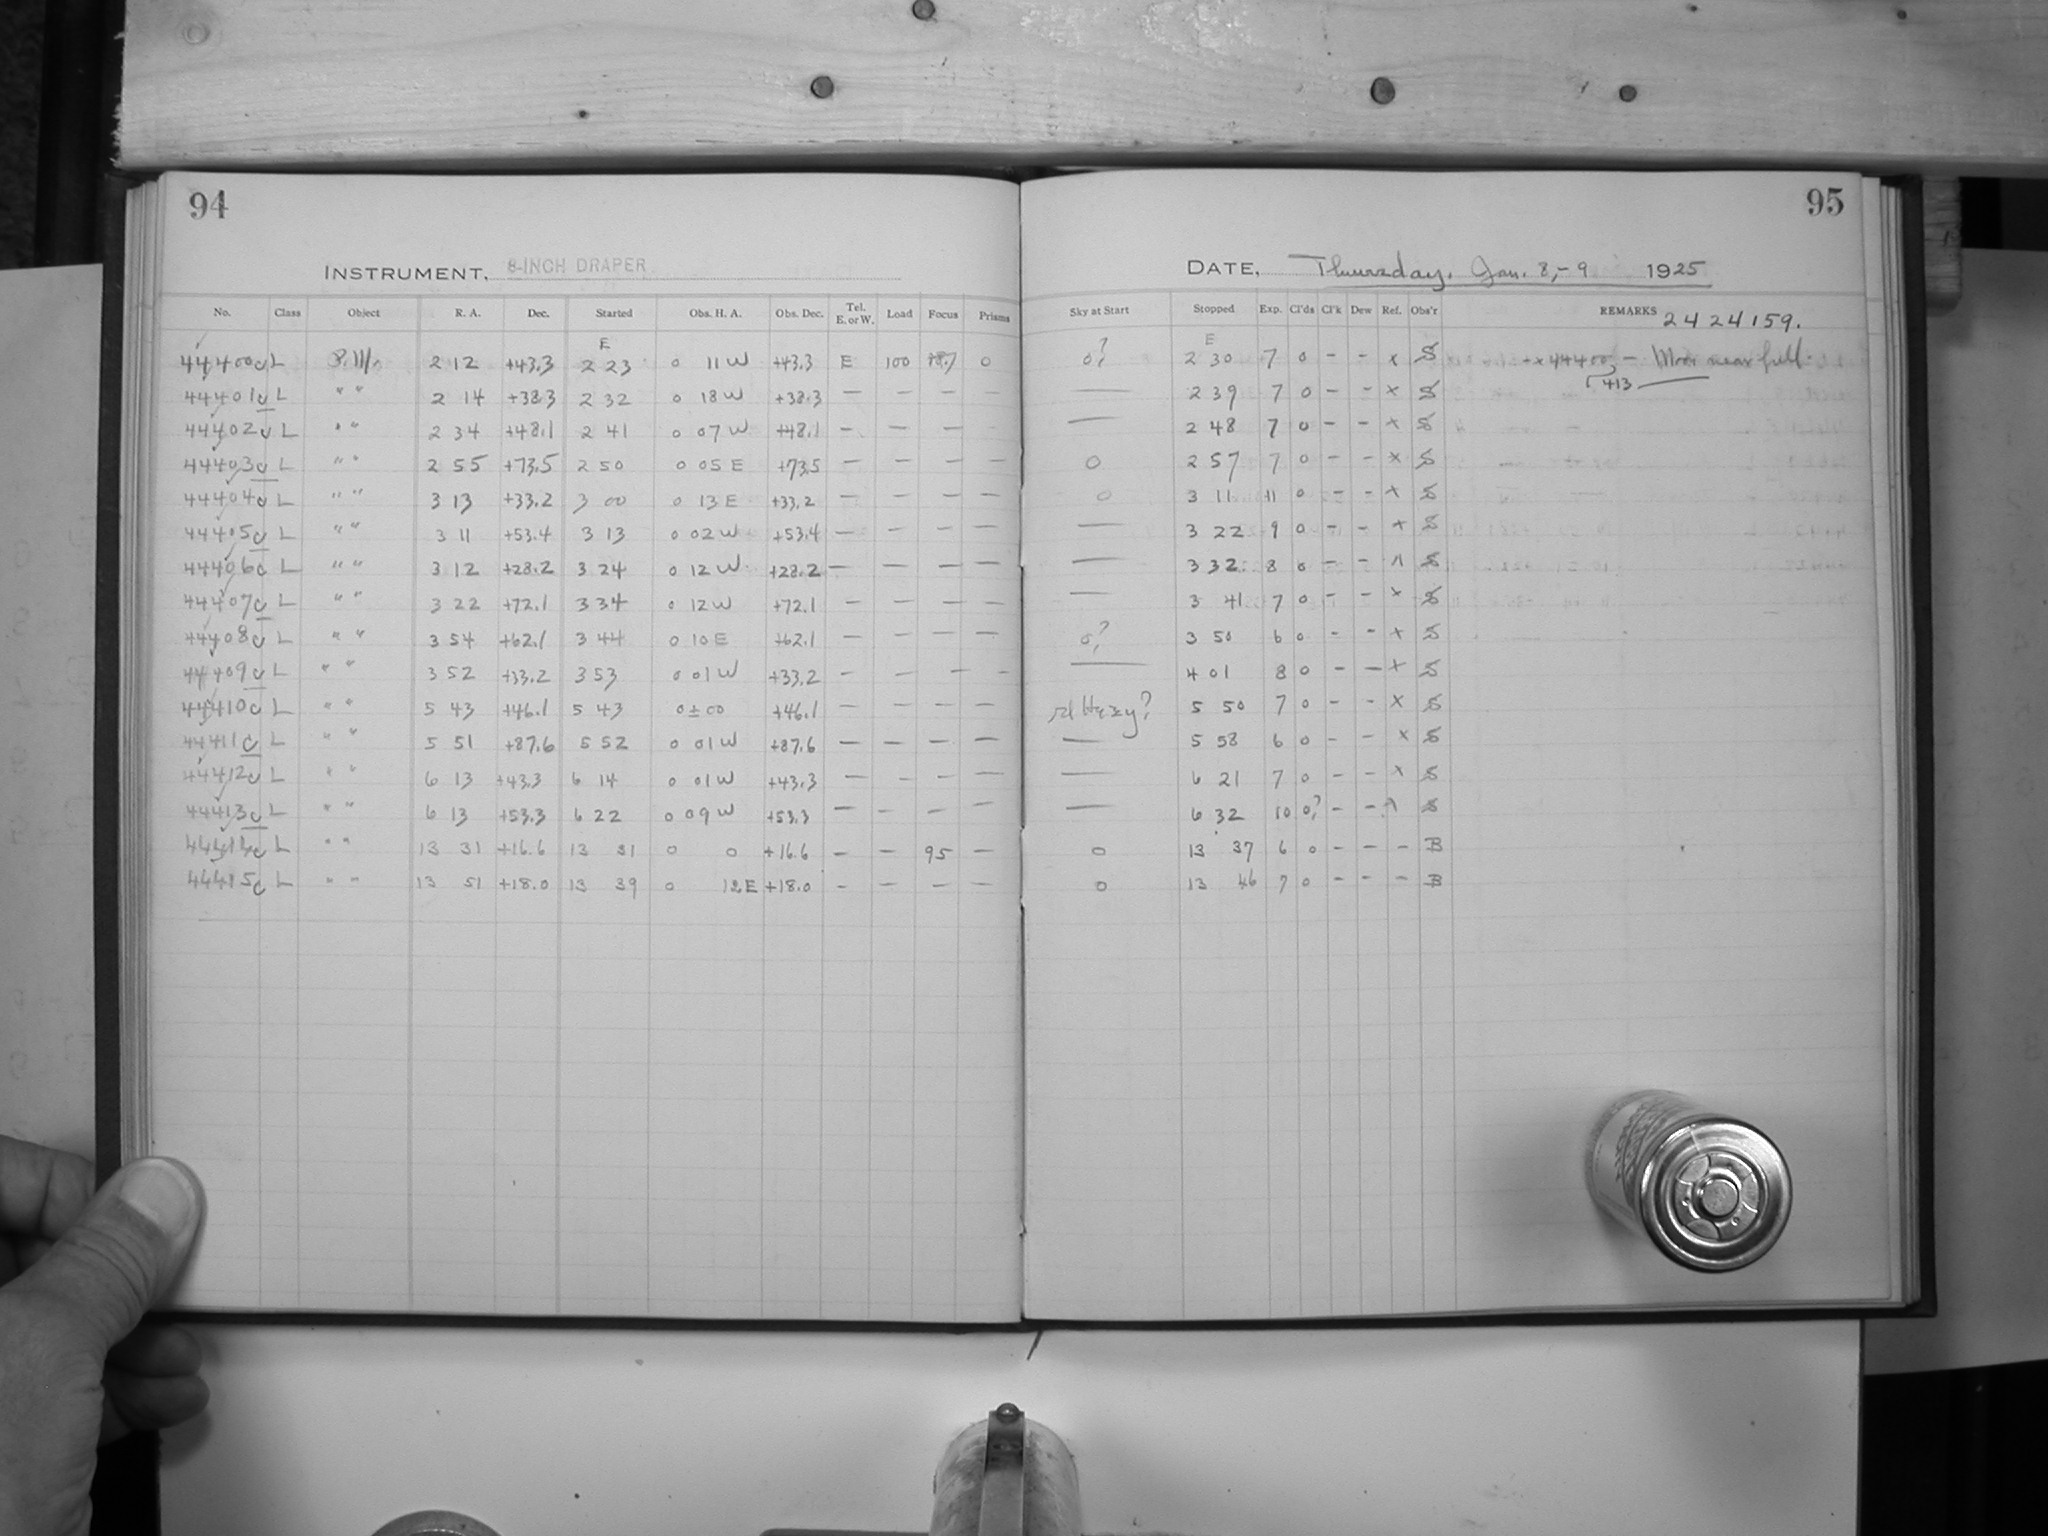 94
INSTRUMENT, 8-INCH DRAPER
No. Class Object R. A. Dec. Started Obs. H. A. Obs. Dec. Tel. E. or W. Load Focus Prisms
E
44400c L P.M. 2 12 +43.3 2 23 0 11 W +43.3 E 100 98.7 0
44401c L " " 2 14 +38.3 2 32 0 18 W +38.3 — — — —
44402c L " " 2 34 +48.1 2 41 0 07 W +48.1 — — — —
44403c L " " 2 55 +73.5 2 50 0 05 E +73.5 — — — —
44404c L " " 3 13 +33.2 3 00 0 13 E +33.2 — — — —
44405c L " " 3 11 +53.4 3 13 0 02 W +53.4 — — — —
44406c L " " 3 12 +28.2 3 24 0 12 W +28.2 — — — —
44407c L " " 3 22 +72.1 3 34 0 12 W +72.1 — — — —
44408c L " " 3 54 +62.1 3 44 0 10 E +62.1 — — — —
44409c L " " 3 52 +33.2 3 53 0 01 W +33.2 — — — —
44410c L " " 5 43 +46.1 5 43 0 ± 00 +46.1 — — — —
44411c L " " 5 51 +87.6 5 52 0 01 W +87.6 — — — —
44412c L " " 6 13 +43.3 6 14 0 01 W +43.3 — — — —
44413c L " " 6 13 +53.3 6 22 0 09 W +53.3 — — — —
44414c L " " 13 31 +16.6 13 31 0 0 +16.6 — — 95 —
44415c L " " 13 51 +18.0 13 39 0 12 E +18.0 — — — —
95
DATE, Thursday, Jan. 8,-9 1925
Sky at Start Stopped Exp. Cl'ds Cl'k Dew Ref. Obs'r REMARKS 2424159.
E
0? 2 30 7 0 - - x S x 44400 — Moon near full.
413 —
— 2 39 7 0 - - x S
— 2 48 7 0 - - x S
0 2 57 7 0 - - x S
0 3 11 11 0 - - x S
— 3 22 9 0 - - x S
— 3 32 8 0 - - x S
— 3 41 7 0 - - x S
0? 3 50 6 0 - - x S
— 4 01 8 0 - - x S
sl Hazy? 5 50 7 0 - - x S
— 5 58 6 0 - - x S
— 6 21 7 0 - - x S
— 6 32 10 0? - - x S
0 13 37 6 0 - - - B
0 13 46 7 0 - - - B